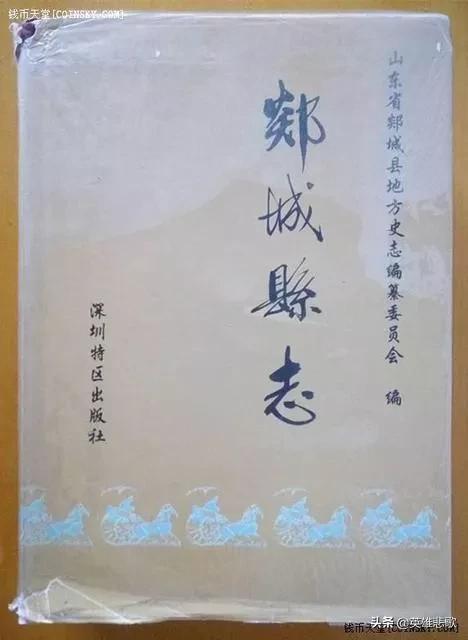 钱币天堂[COINSKY.COM]
钱币天堂[COINSKY.COM]
山东省郯城县地方史志编纂委员会 编
郯城縣志
深圳特区出版社
头条 @英雄悲歌
钱币天堂[COINSKY.COM]